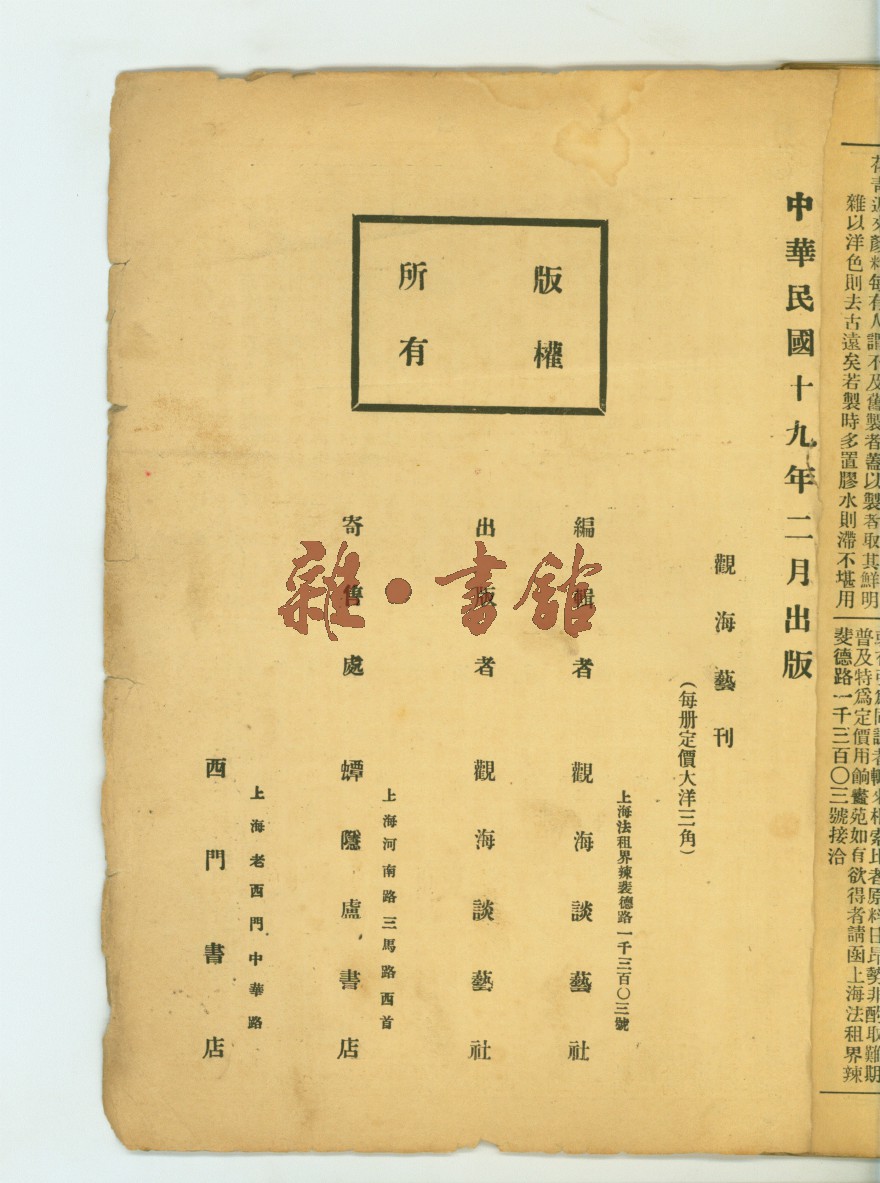 雜以洋色則去古遠矣若製時多置膠水則滯不堪用
普及特爲定價用餉藝苑如有欲得者請函上海法租界辣
斐德路一千三百〇三號接洽
中華民國十九年二月出版
觀海藝刊
(每册定價大洋三角)
版權
所有
上海法租界辣裴德路一千三百〇三號
編輯者 觀海談藝社
出版者 觀海談藝社
上海河南路三馬路西首
寄售處 蟫隱盧書店
上海老西門中華路
西門書店
雜·書館